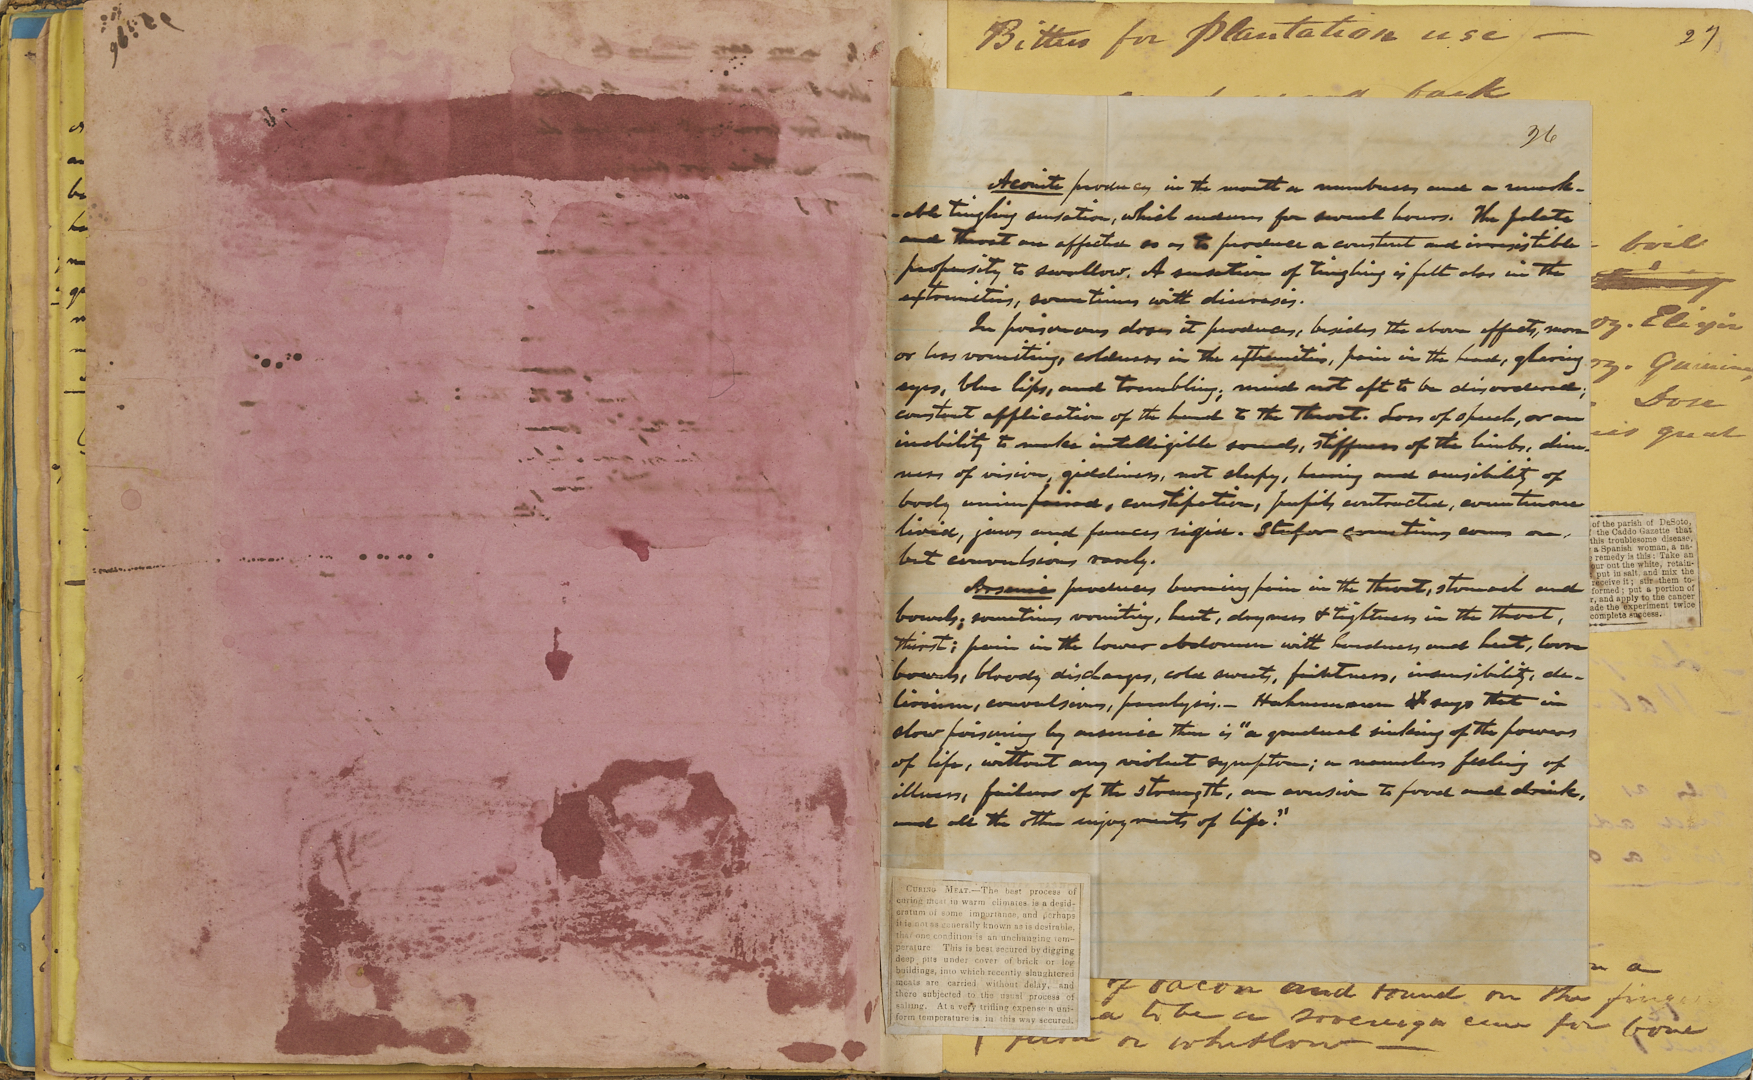 Bitters for Plantation use — 27
back
36
Aconite produces in the mouth a numbness and a remark-
-able tingling sensation, which endures for several hours. The palate
and throat are affected so as to produce a constant and irresistible
propensity to swallow. A sensation of tingling is felt also in the
extremities, sometimes with diuresis.
In poisonous doses it produces, besides the above effects, more
or less vomiting, coldness in the extremities, pain in the head, glaring
eyes, blue lips, and trembling; mind not apt to be disordered;
constant application of the hand to the throat. Loss of speech, or an
inability to make intelligible sounds, stiffness of the limbs, dim-
ness of vision, giddiness, not sleepy, hearing and sensibility of
body unimpaired, constipation, pupils contracted, countenance
livid, jaws and fauces rigid. Stupor sometimes comes on,
but convulsions rarely.
Arsenic produces burning pain in the throat, stomach and
bowels; sometimes vomiting, heat, dryness & tightness in the throat,
thirst; pain in the lower abdomen with hardness and heat, loose
bowels, bloody discharges, cold sweats, faintness, insensibility, de-
lirium, convulsions, paralysis. — Hahnemann says that in
slow poisoning by arsenic there is "a gradual sinking of the powers
of life, without any violent symptom; a nameless feeling of
illness, failure of the strength, an aversion to food and drink,
and all the other enjoyments of life."
CURING MEAT.—The best process of
curing meat in warm climates is a desid-
eratum of some importance, and perhaps
it is not as generally known as is desirable,
that one condition is an unchanging tem-
perature This is best secured by digging
deep pits under cover of brick or log
buildings, into which recently slaughtered
meats are carried without delay, and
there subjected to the usual process of
salting. At a very trifling expense a uni-
form temperature is in this way secured.
boil
oz. Elixir
oz. Quinine
Dose
is great
of the parish of DeSoto,
the Caddo Gazette that
this troublesome disease,
a Spanish woman, a na-
remedy is this: Take an
our out the white, retain-
put in salt, and mix the
receive it; stir them to-
formed; put a portion of
r, and apply to the cancer
ade the experiment twice
complete success.
on a
of bacon and bound on the finger
to be a sovereign cure for bone
felon or whitlow —